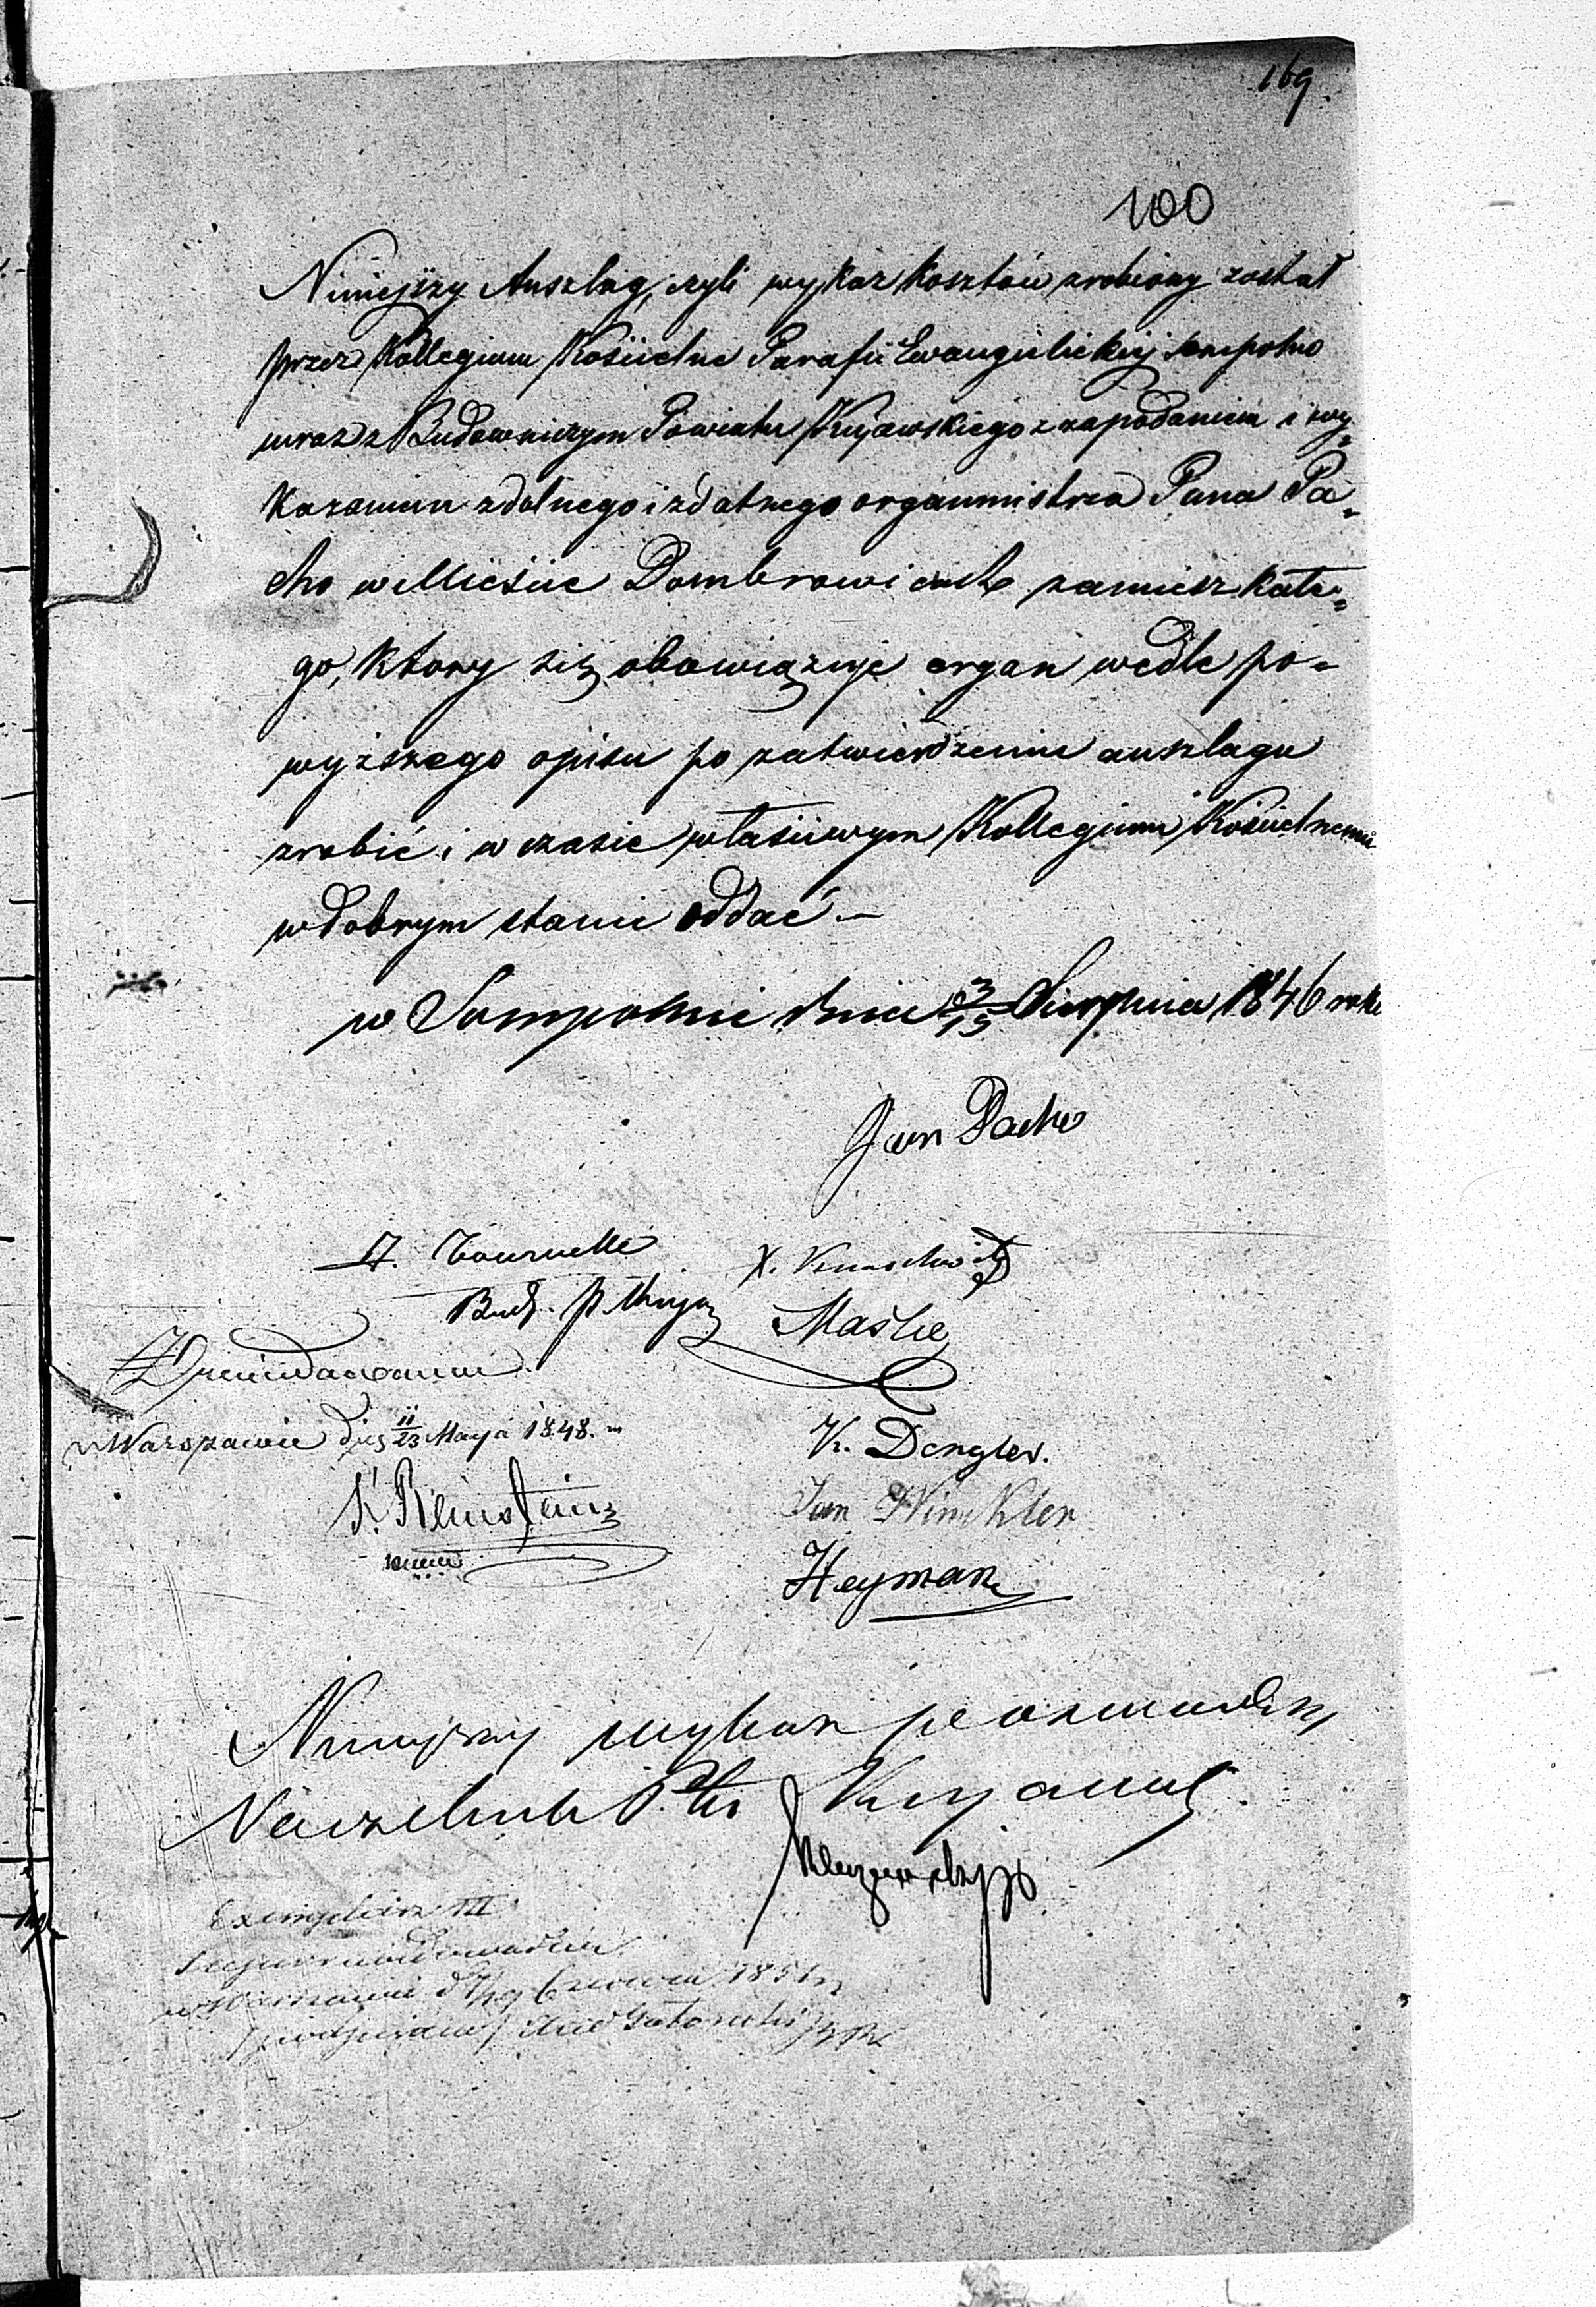 169.
100
Niniejszy Anszlag, czyli wykaz kosztów zrobiony został
przez Kollegium Kościelne Parafii Ewangielickiej Sempolno
wraz z Budowniczym Powiatu Kujawskiego z zapodaniem i wy=
kazaniem zdolnego i zdatnego organmistrza Pana Pa=
cho w Mieście Dombrowicach zamieszkałe=
go, ktory się obowiązuje organ wedle po=
wyższego opisu po zatwierdzeniu anszlagu
zrobić i w czasie właściwym Kollegium Kościelnemu
w dobrym stanie oddać.—
w Sompolnie dnia 3/15 Sierpnia 1846 roku
Jan Pacho
A. Tournelle
Bud. P.
Maske
Zrewidowano
w Warszawie d. 11/23 Maya 1848.
K. Dengler.
Jan Winkler
Heyman
Niniejszy wykaz
Naczelnik Ptu Kujaws
Exemplarz III
w Warszawie Czerwca 1851 r.